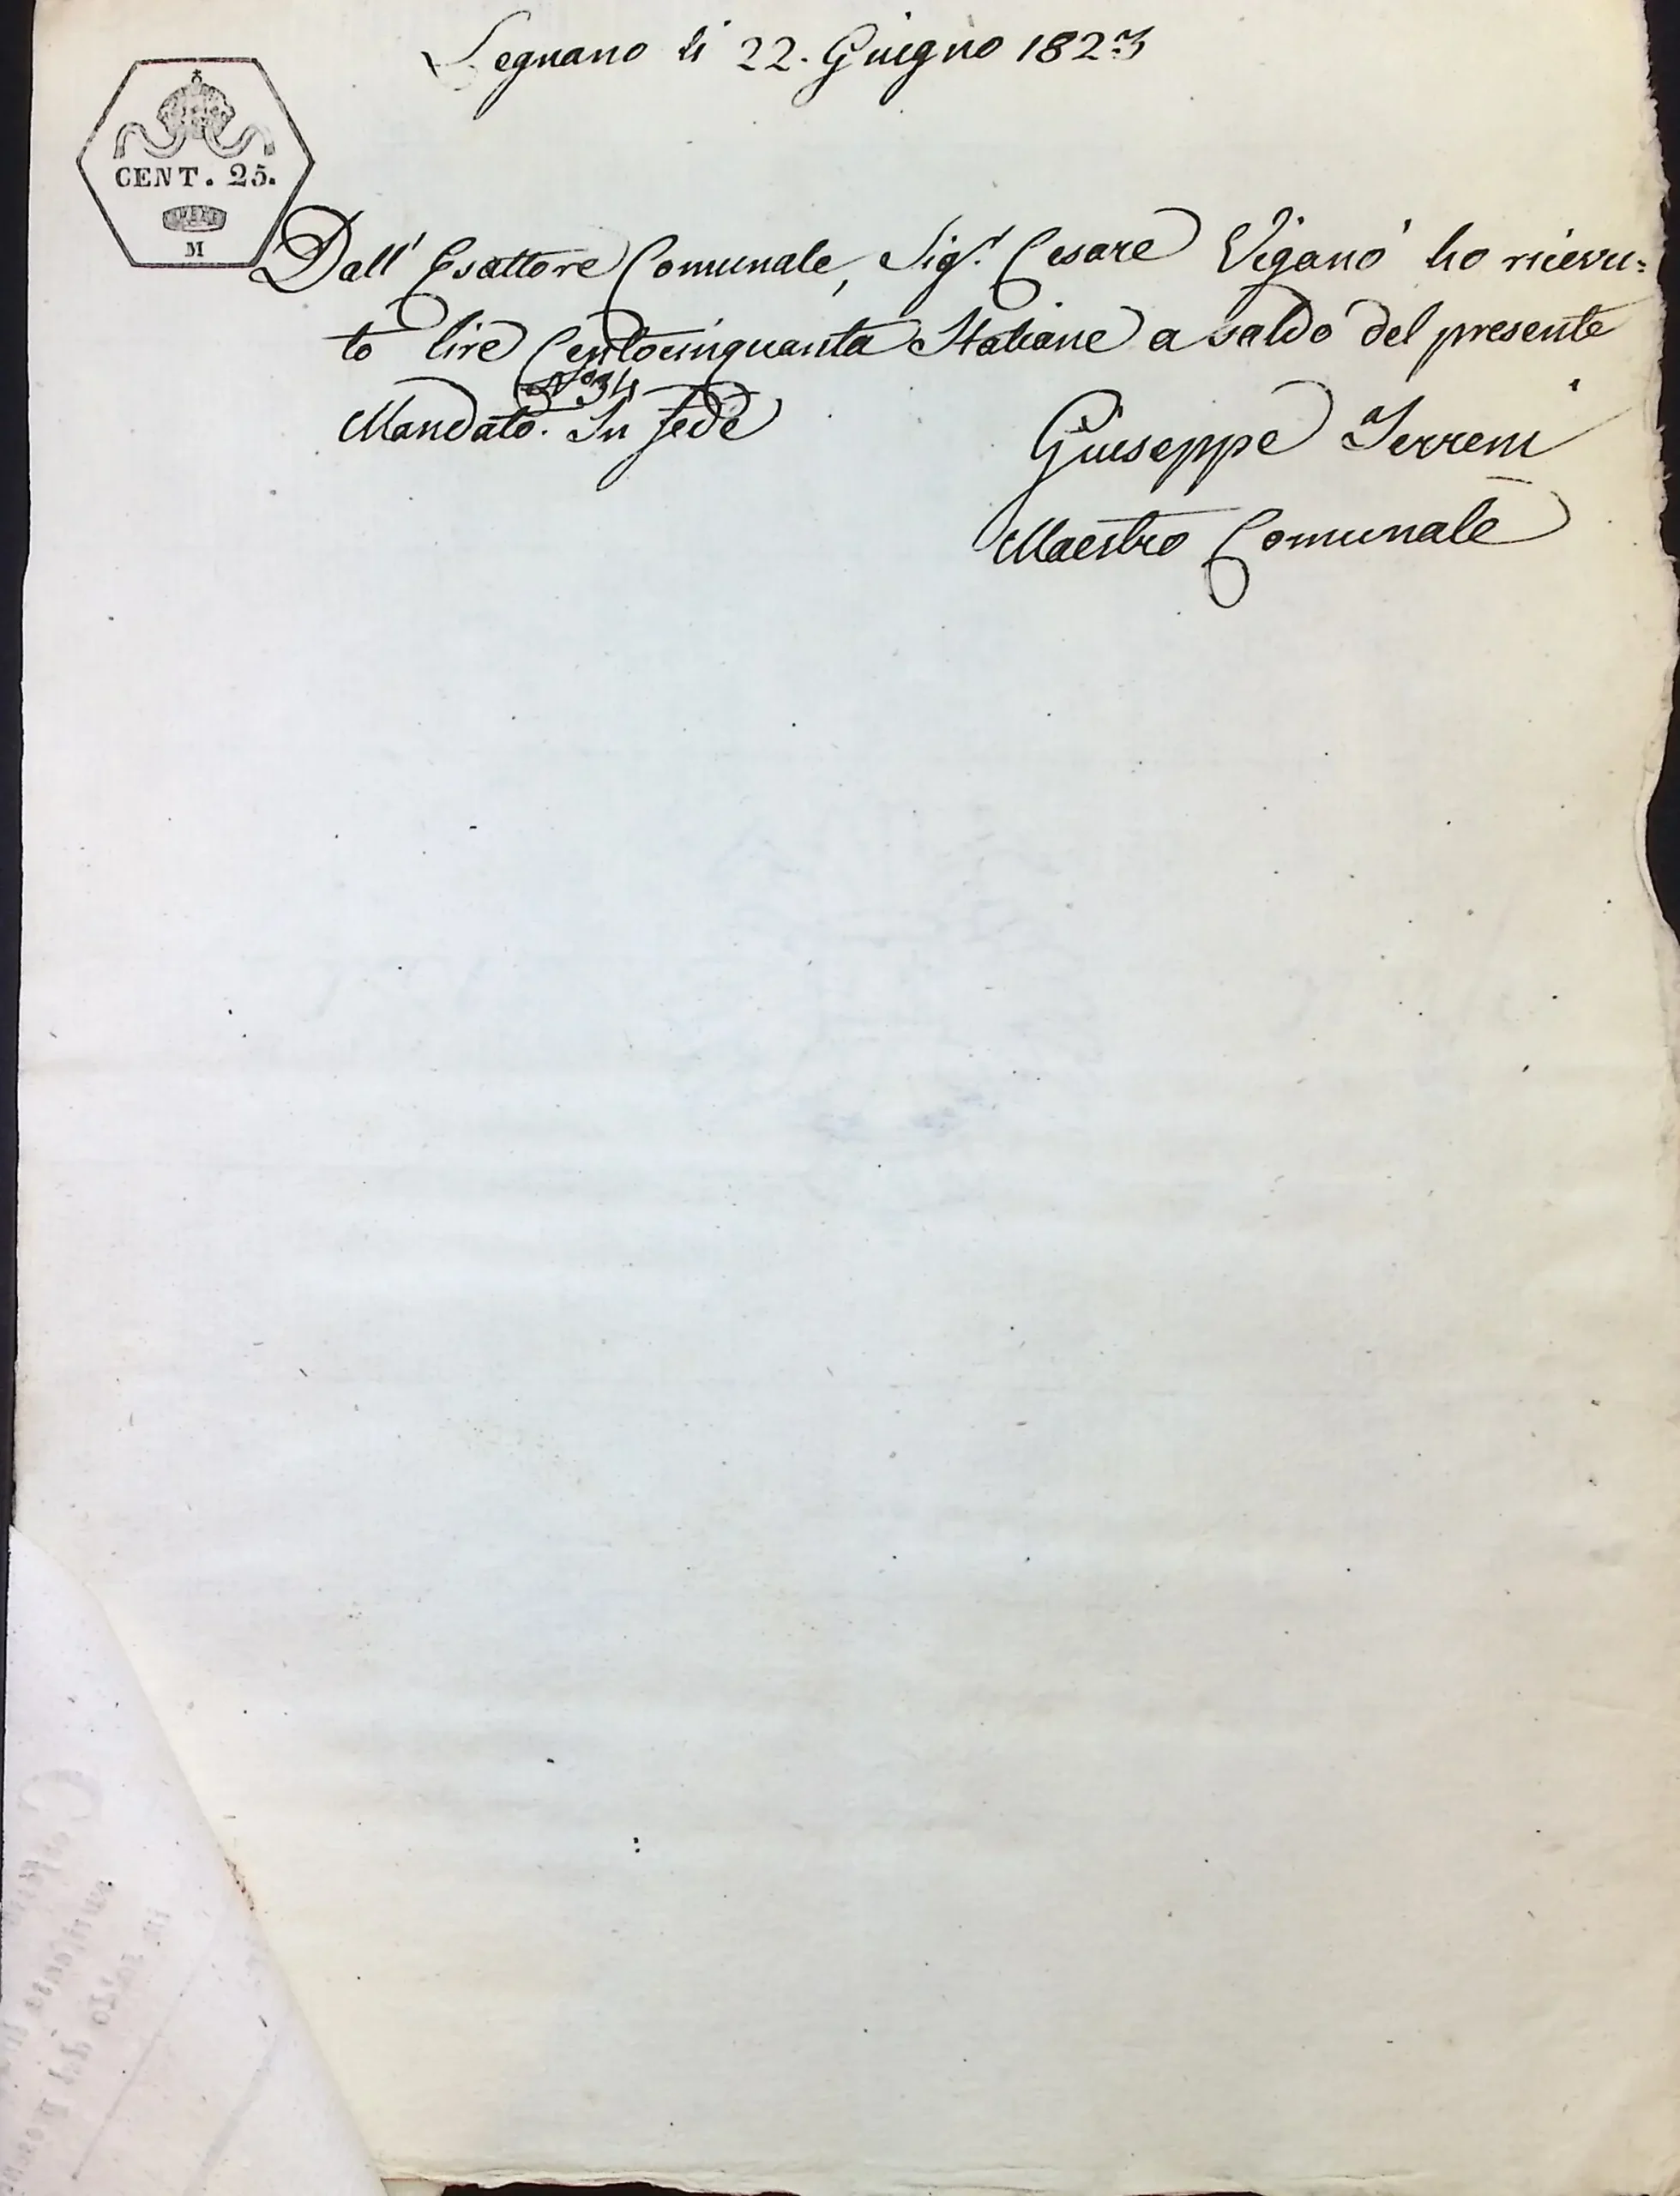 Legnano li 22. Giugno 1823
CENT. 25.
M
Dall' Esattore Comunale, Sig.r Cesare Viganò ho ricevu=
to lire Centocinquanta Italiane a saldo del presente
N.o 34
Mandato. In fede
Giuseppe Terreni
Maestro Comunale